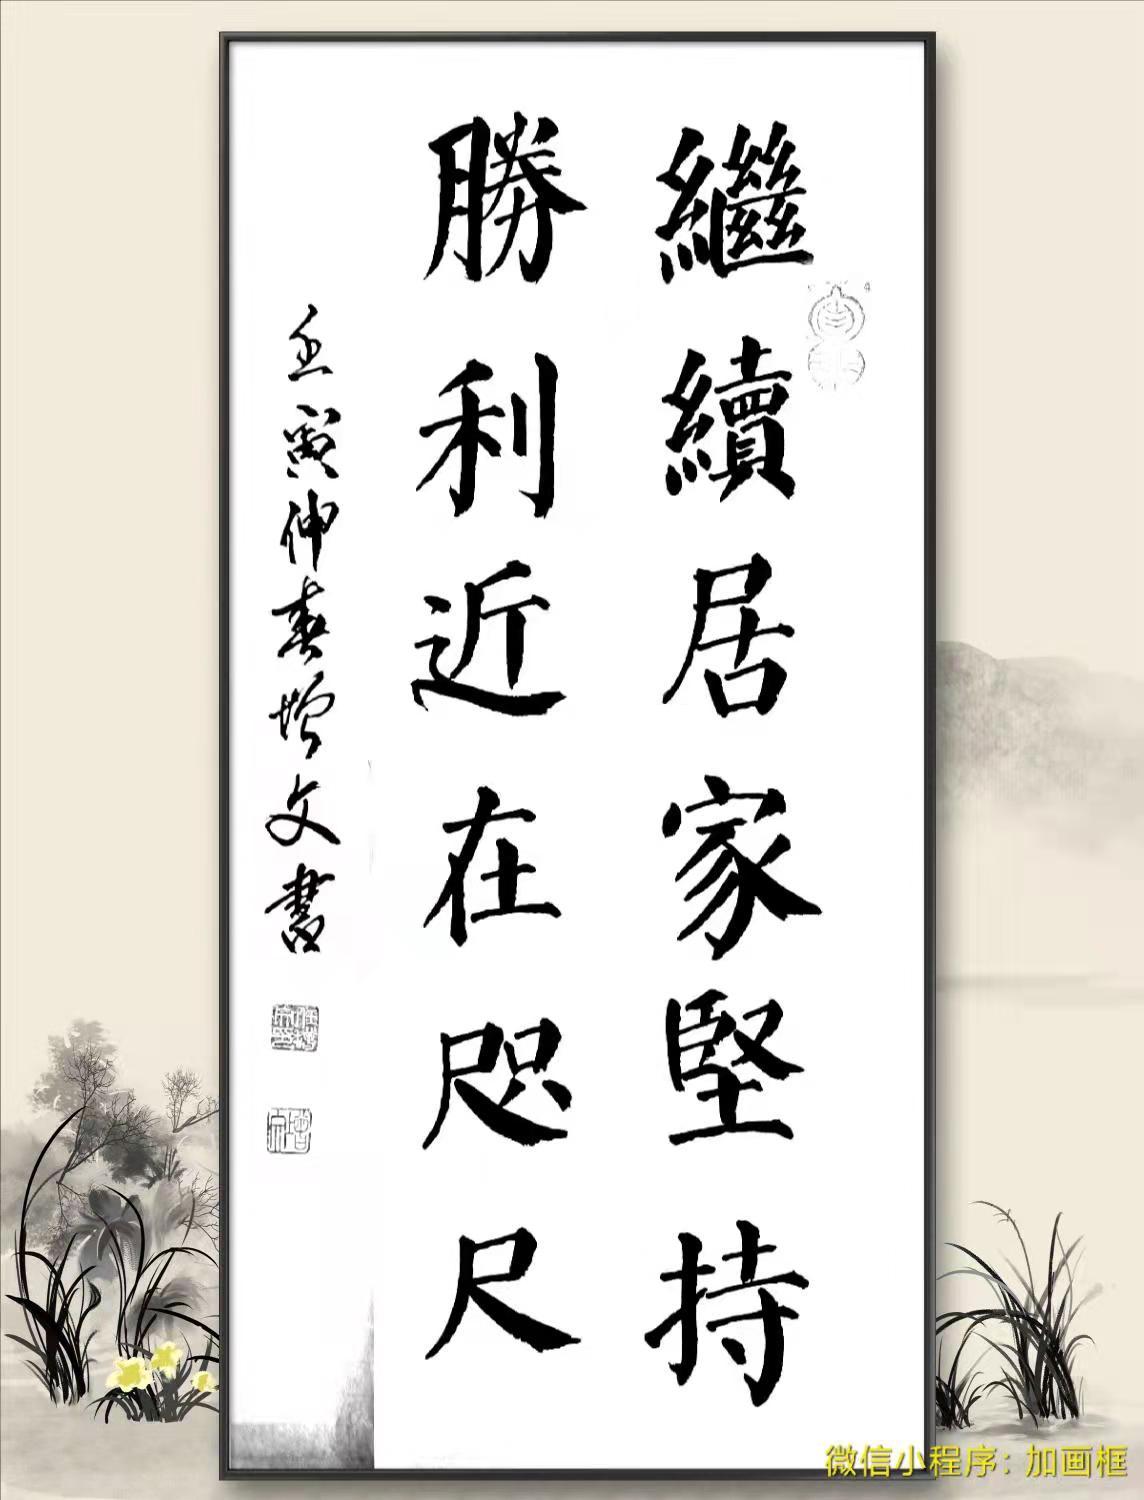 繼續居家堅持
勝利近在咫尺
壬寅仲春增文書
微信小程序：加画框